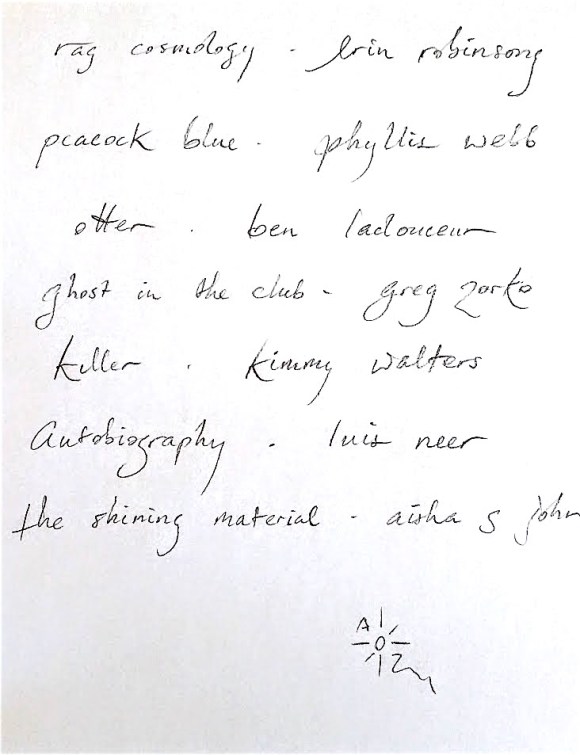 rag cosmology - Erin robinsong
peacock blue. phyllis webb
otter . ben ladouceur
ghost in the club - greg zorko
killer . kimmy walters
Autobiography . luis neer
the shining material - aisha s john
A